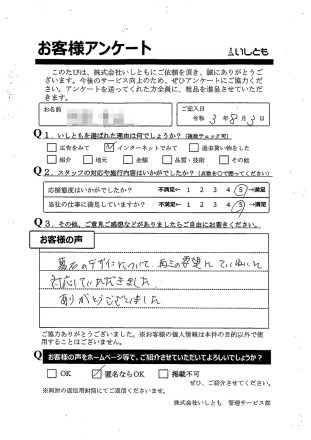 お客様アンケート
いしとも
このたびは、株式会社いしともにご依頼を頂き、誠にありがとうご
ざいます。今後のサービス向上のため、ぜひアンケートにご協力くだ
さい。アンケートを送ってくれた方全員に、粗品を進呈させていただ
きます。
お名前
ご記入日
令和 3年8月3日
Q1.いしともを選ばれた理由は何でしょうか?(複数チェック可)
広告をみて インターネットでみて 過去買い物をした
紹介 地元 金額 品質・技術 その他
Q2.スタッフの対応や施行内容はいかがでしたか?(点数を○で囲ってください)
応接態度はいかがでしたか? 不満足← 1 2 3 4 5 →満足
当社の仕事に満足していますか? 不満足← 1 2 3 4 5 →満足
Q3.その他、ご意見ご感想などがありましたらご自由にお書きください。
お客様の声
墓石のデザインについて、両の要望にていねいに
対応していただきました
ありがとうございました
ご協力ありがとうございました。※お客様の個人情報は本件の目的以外で使
用することはございません。
Q お客様の声をホームページ等で、ご紹介させていただいてよろしいでしょうか?
OK 匿名ならOK 掲載不可
ぜひ、ご紹介させてください。
※同封の返信用封筒にてご返信くださいませ。
株式会社いしとも 管理サービス部